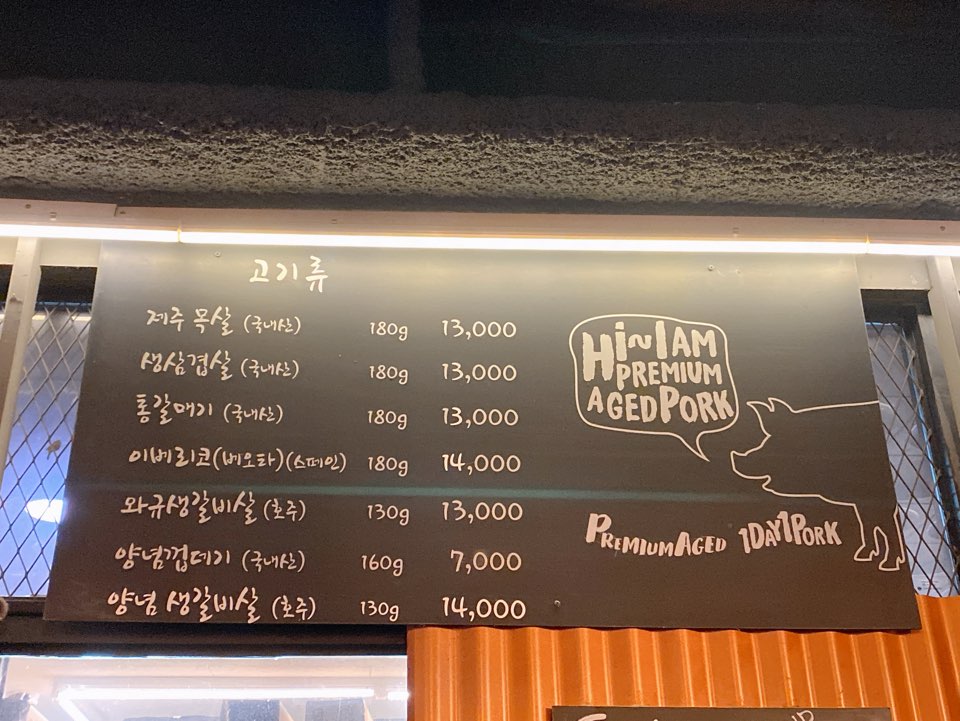 고기류
제주 목살 (국내산) 180g 13,000
생삼겹살 (국내산) 180g 13,000
통갈매기 (국내산) 180g 13,000
이베리코(베요타)(스페인) 180g 14,000
와규생갈비살 (호주) 130g 13,000
양념껍데기 (국내산) 160g 7,000
양념 생갈비살 (호주) 130g 14,000
Hi~I AM
PREMIUM
AGED PORK
PREMIUM AGED 1DAY1PORK